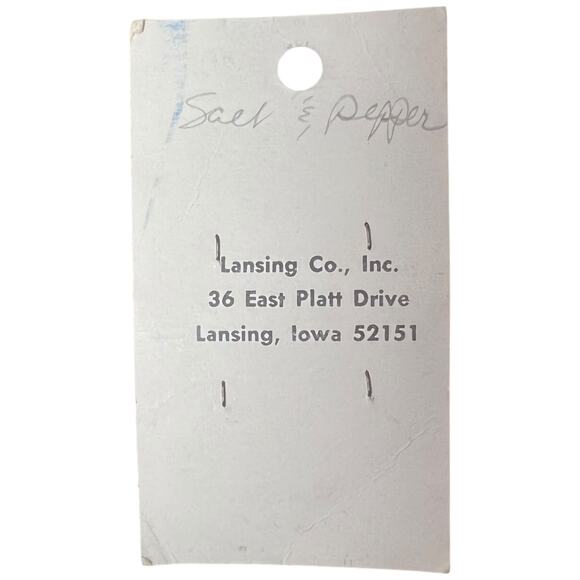 Salt & Pepper
Lansing Co., Inc.
36 East Platt Drive
Lansing, Iowa 52151